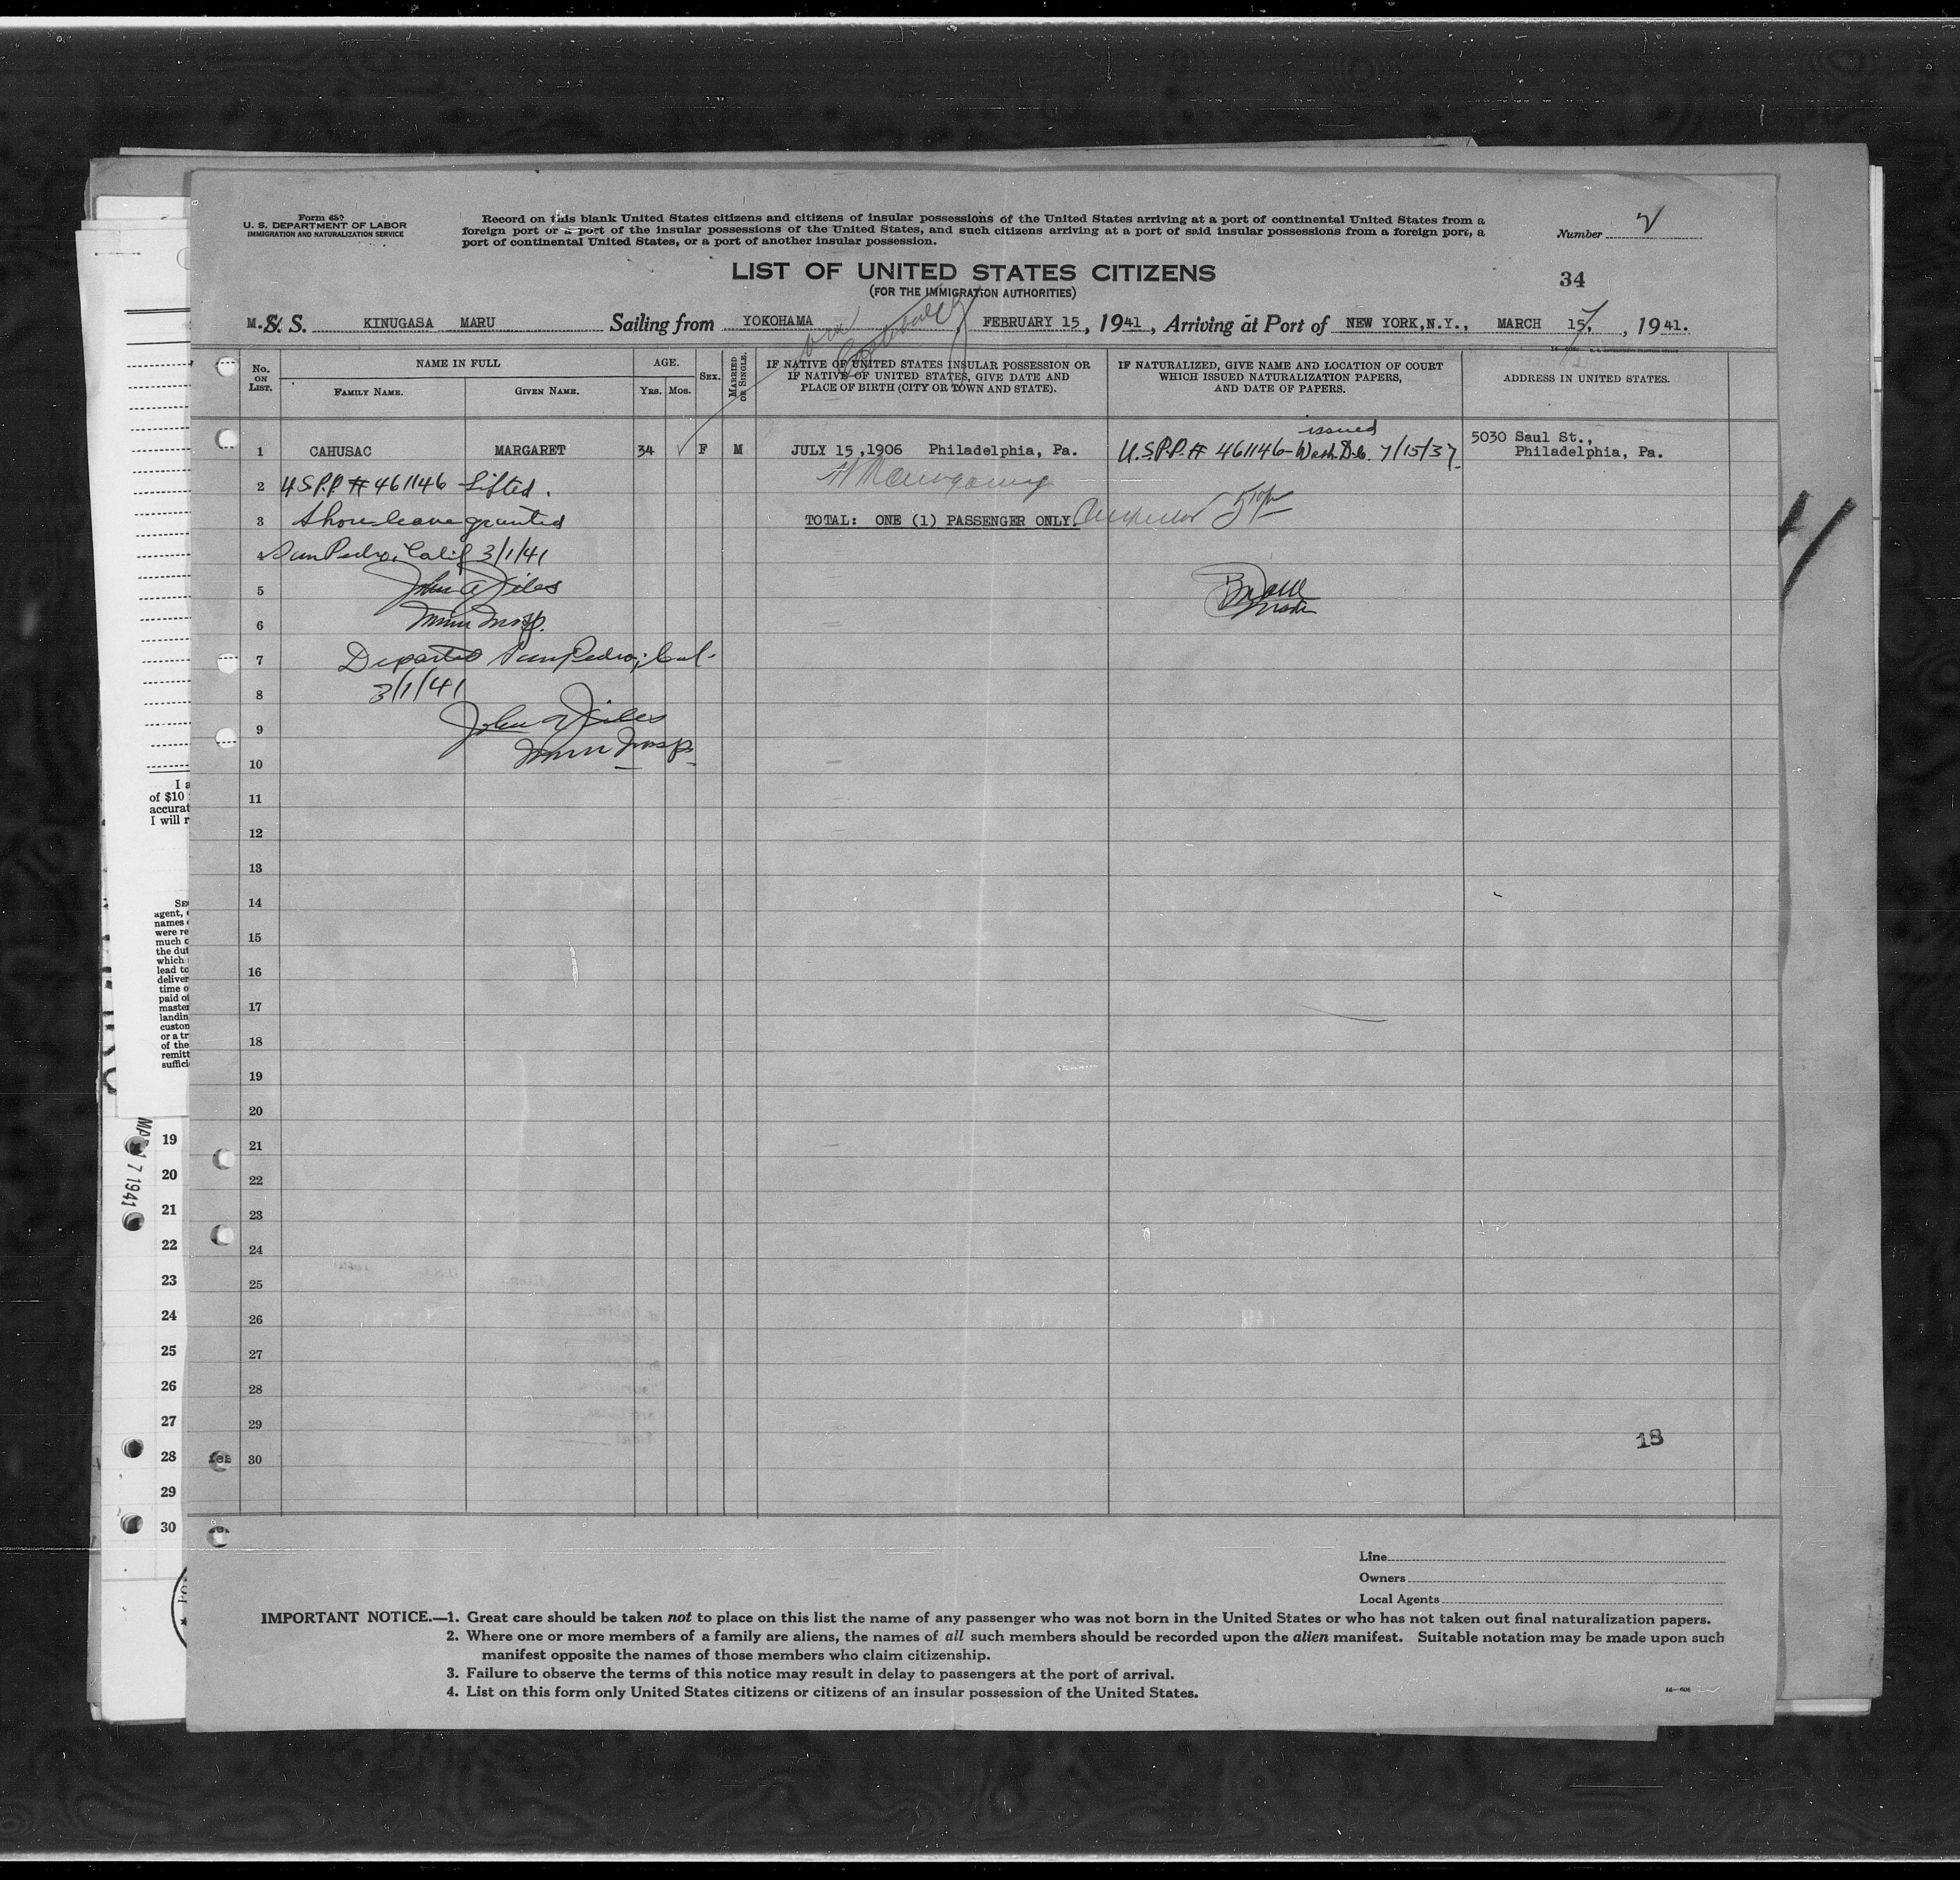 Form 659
U. S. DEPARTMENT OF LABOR
IMMIGRATION AND NATURALIZATION SERVICE
Record on this blank United States citizens and citizens of insular possessions of the United States arriving at a port of continental United States from a
foreign port or a port of the insular possessions of the United States, and such citizens arriving at a port of said insular possessions from a foreign port, a
port of continental United States, or a port of another insular possession.
Number 2
LIST OF UNITED STATES CITIZENS
(FOR THE IMMIGRATION AUTHORITIES)
34
M. S. S. KINUGASA MARU Sailing from YOKOHAMA FEBRUARY 15, 1941, Arriving at Port of NEW YORK,N.Y., MARCH 17, 1941.
No. ON LIST.
NAME IN FULL
FAMILY NAME.
GIVEN NAME.
AGE.
YRS. MOS.
SEX.
MARRIED OR SINGLE.
IF NATIVE OF UNITED STATES INSULAR POSSESSION OR
IF NATIVE OF UNITED STATES, GIVE DATE AND
PLACE OF BIRTH (CITY OR TOWN AND STATE).
IF NATURALIZED, GIVE NAME AND LOCATION OF COURT
WHICH ISSUED NATURALIZATION PAPERS,
AND DATE OF PAPERS.
ADDRESS IN UNITED STATES.
1 CAHUSAC MARGARET 34 F M JULY 15,1906 Philadelphia, Pa. U.S.P.P. # 461146- issued Wash. D.C. 7/15/37 5030 Saul St.,
Philadelphia, Pa.
2 U.S.P.P. # 461146 Lifted.
3 Shore leave granted TOTAL: ONE (1) PASSENGER ONLY. Inspector
4 San Pedro, Calif 3/1/41
5 John A Files
6 Imm Insp.
7 Departed San Pedro, Cal.
8 3/1/41
9 John A Files
Imm Insp.
10
11
12
13
14
15
16
17
18
19
20
21
22
23
24
25
26
27
28
29
30
18
Line
Owners
Local Agents
IMPORTANT NOTICE.—1. Great care should be taken not to place on this list the name of any passenger who was not born in the United States or who has not taken out final naturalization papers.
2. Where one or more members of a family are aliens, the names of all such members should be recorded upon the alien manifest. Suitable notation may be made upon such
manifest opposite the names of those members who claim citizenship.
3. Failure to observe the terms of this notice may result in delay to passengers at the port of arrival.
4. List on this form only United States citizens or citizens of an insular possession of the United States.
I a
of $10
accurat
I will r
agent,
names
were re
much
the dut
which
lead to
deliver
time o
paid of
master
landin
custom
or a tr
of the
remitt
suffici
17 1941
19
20
21
22
23
24
25
26
27
28
29
30